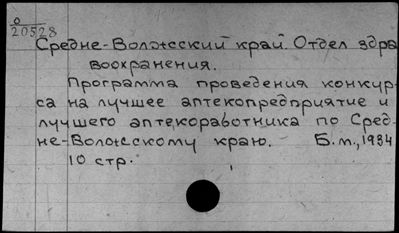 0
20528
Средне-Волжский край. Отдел здра
воохранения.
Программа проведения конкур-
са на лучшее аптекопредприятие и
лучшего аптекоработника по Сред-
не-Волжскому краю. Б.м., 1934
10 стр.